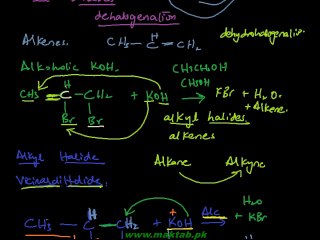 dehalogenation
Alkenes. CH3 - CH = CH2 dehydrohalogenation.
Alcoholic KOH. CH3CH2OH
CH3OH
CH3 = C - CH2 + KOH → KBr + H2O.
H
+ Alkene.
Br Br
alkyl halides
alkenes
Alkyl Halide Alkane Alkyne
Vicinal dihalide.
H2O
+ KBr
CH3 - C - CH2 + KOH Alc
H
www.maktab.pk